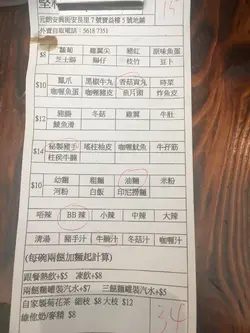 元朗安興街安民里7號寶晶樓5號地鋪
外賣自取電話:5618 7351
$8 蘿蔔 雞翼尖 豬紅 原味魚蛋
芝士腸 腸仔 枝竹 豆卜
$10 鳳爪 黑椒牛丸 香菇貢丸 時菜
咖喱魚蛋 咖喱豬皮 魚片頭 炸魚皮
$12 豬腸 冬菇 雞翼 牛肚
鯪魚滑
$14 秘製豬手 瑤柱油皮 咖喱魷魚 牛孖筋
柱侯牛腩
$10 幼麵 粗麵 油麵 米粉
河粉 白飯 印尼撈麵
唔辣 BB辣 小辣 中辣 大辣
清湯 豬手汁 牛腩汁 冬菇汁 咖喱汁
(每碗兩餸加麵起計算)
跟餐熱飲+$5 凍飲+$8
兩餸麵罐裝汽水+$7 三餸麵罐裝汽水+$5
自家製菊花茶 細枝 $8 大枝 $12
維他奶/麥精 $8
34